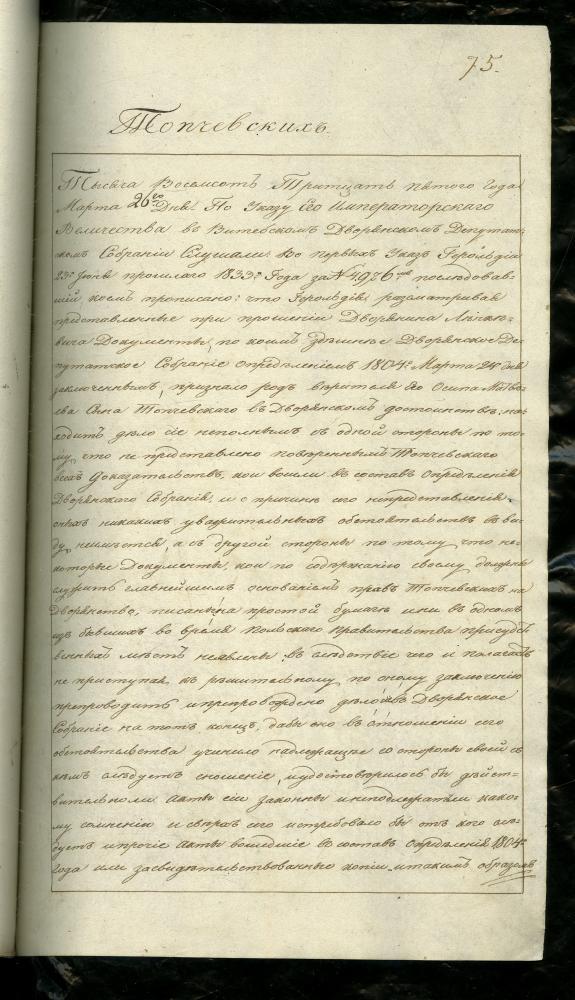 75.
Топчевскихъ.
Тысяча Восемсотъ Тритцать пятого Года
Марта 26го Дня. По Указу Его Императорскаго
Величества въ Витебскомъ Дворянскомъ Депутат-
скомъ Собраніи Слушали: Во первыхъ Указъ Герольдіи
23го Іюня прошлаго 1833го Года за № 4976мъ последовав-
шій коемъ прописано: что Герольдія разсматривая
представленные при прошеніи Дворянина
вича Документы, по коимъ здешнее Дворянское Де-
путатское Собраніе определеніемъ 1804го Марта 24го дня
заключеннымъ, признало родъ верителя его Осипа Матве-
ева Сына Топчевскаго въ Дворянскомъ достоинстве: на-
ходитъ дело сіе неполнымъ съ одной стороны по то-
му, что не представлено повереннымъ Топчевскаго
всехъ доказательствъ, кои вошли въ составъ определенія
Дворянскаго Собранія, и о причинѣ сего непредставленія,
оныхъ никакихъ уверительныхъ обстоятельствъ въ ви-
ду неимеется, а съ другой стороны по тому что не-
которые Документы, кои по содержанію своему должны
служить главнейшимъ основаніемъ правъ Топчевскихъ на
Дворянство, писаны на простой бумаге и ни въ одномъ
изъ бывшихъ во время Польскаго правительства присудст-
венныхъ местъ неявлены въ следствіе чего и полагаетъ
не приступая къ решительному по оному заключенію
препроводить и препровождено дело въ Дворянское
Собраніе на тотъ конецъ, дабы оно въ отношеніи сего
обстоятельства учинило надлежащее со стороны своей съ
кемъ следуетъ сношеніе, и удостоверилось бы действ-
вительноли акты сіи законны и неподлежатъли како-
му сомненію и сверхъ сего истребовало бы отъ кого сле-
дуетъ и прочіе акты вошедшіе въ составъ определенія 1804го
Года или засвидетельствованные копіи, и такимъ образомъ